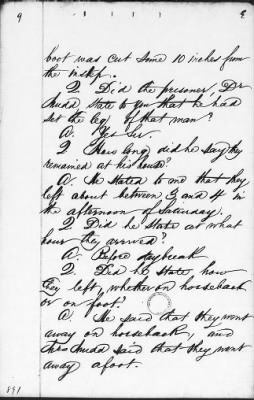 9
boot was cut some 10 inches from
the instep.
Q. Did the prisoner, Dr
Mudd, state to you that he had
set the leg of that man?
A. Yes Sir.
Q. How long did he say they
remained at his house?
A. He stated to me that they
left about between 3 and 4 in
the afternoon of Saturday.
Q. Did he state at what
hour they arrived?
A. Before daybreak
Q. Did he state how
they left, whether on horseback
or on foot?
A. He said that they went
away on horseback, and
Mrs Mudd said that they went
away afoot.